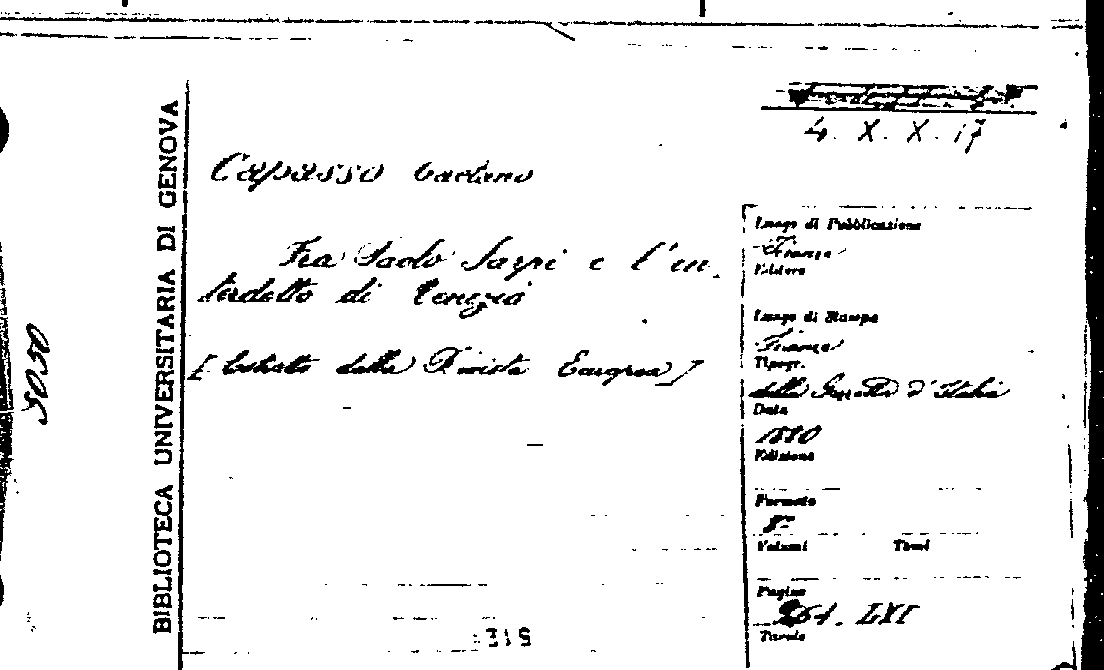 BIBLIOTECA UNIVERSITARIA DI GENOVA
4. X. X. 17
Capasso Gaetano
Fra Paolo Sarpi e l'in-
terdetto di Venezia
[Estratto dalla Rivista Europea]
Luogo di Pubblicazione
Firenze
Editore
Luogo di Stampa
Firenze
Tipogr.
della Gazzetta d'Italia
Data
1880
Edizione
Formato
8°
Volumi Tomi
Pagine
LXI
Tavole
5050